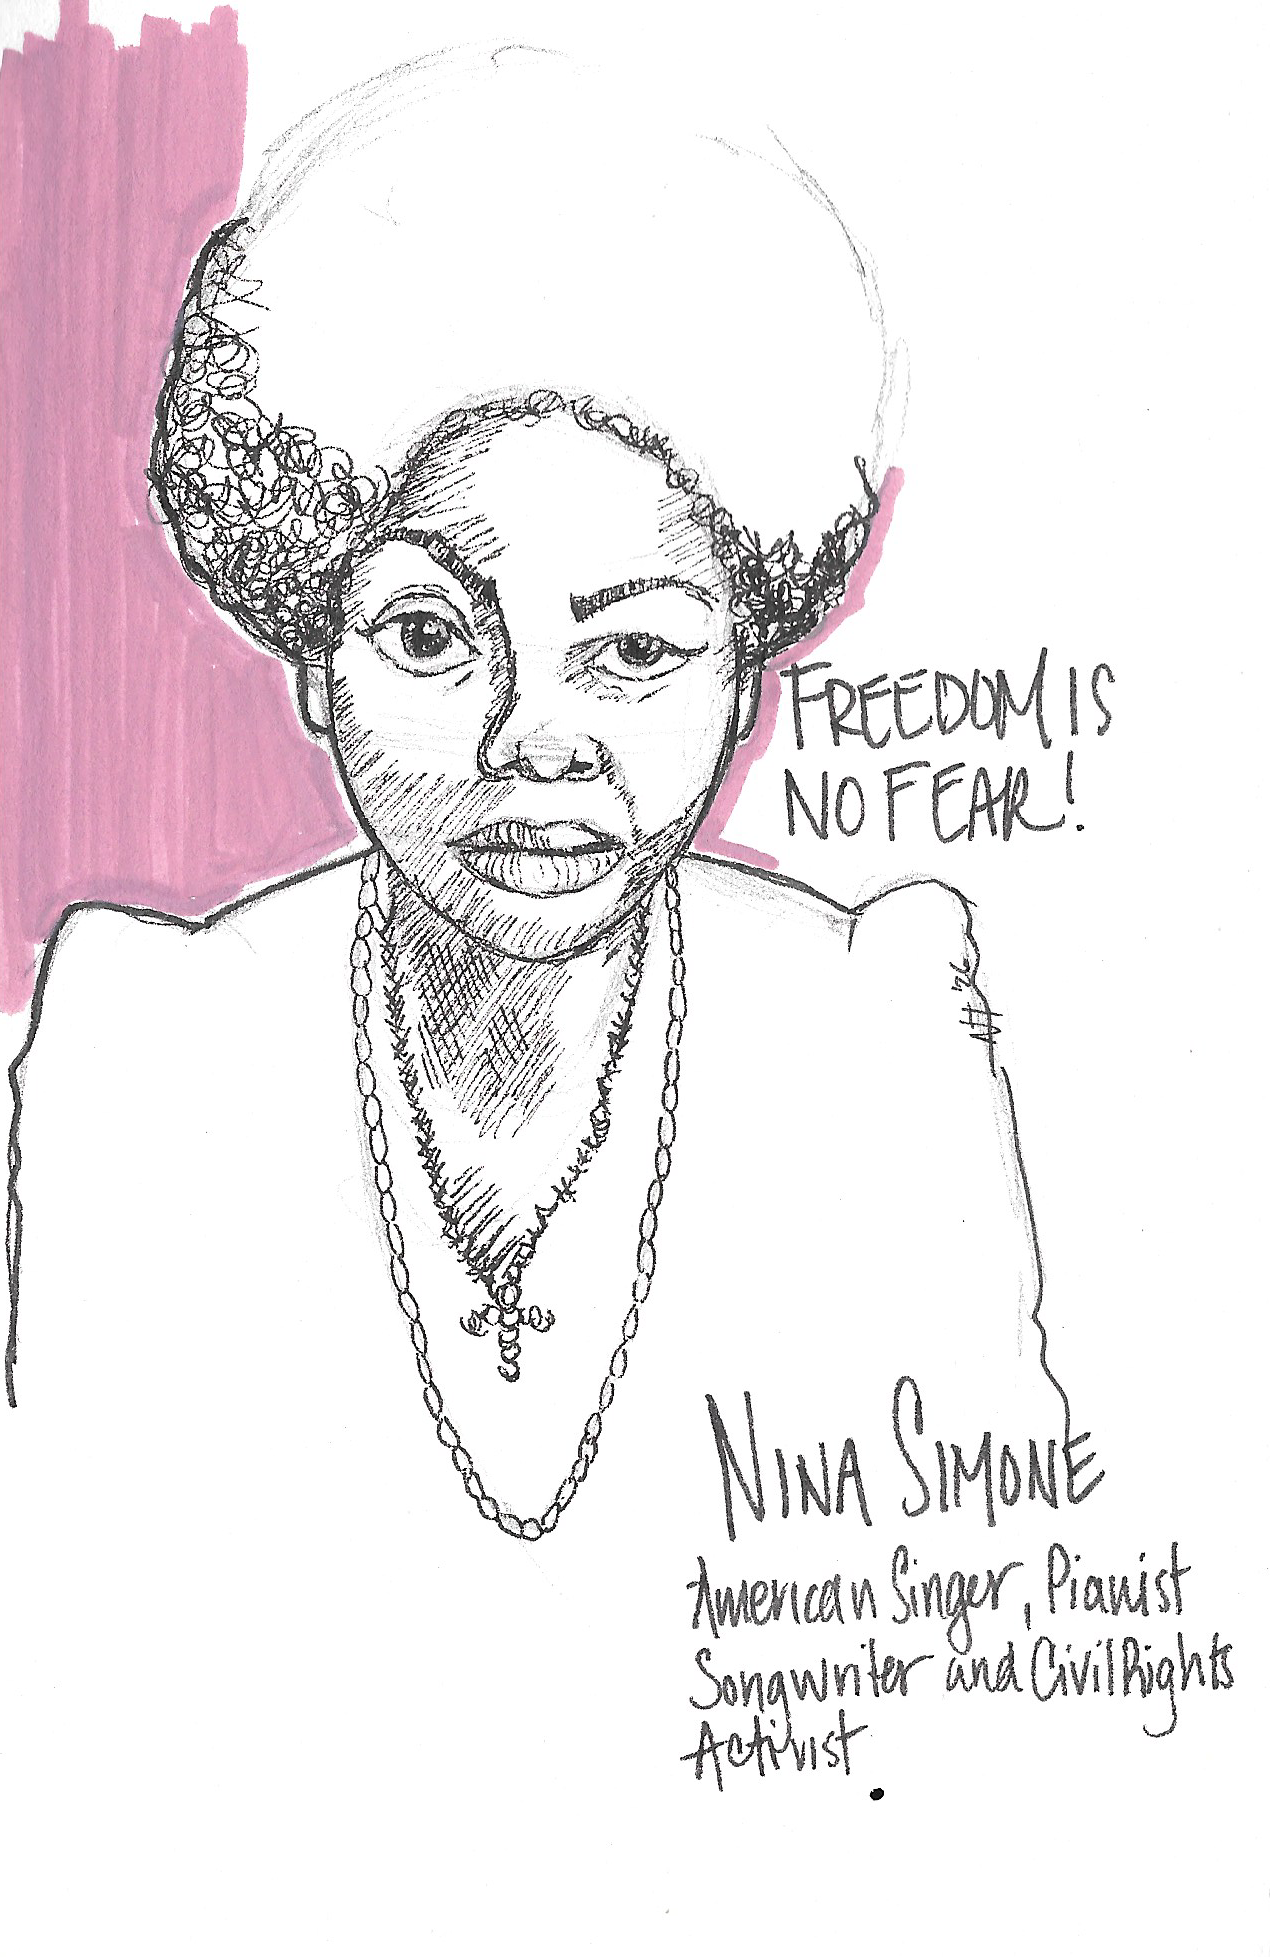 FREEDOM IS
NO FEAR!
NH '26
NINA SIMONE
American Singer, Pianist
Songwriter and Civil Rights
Activist.